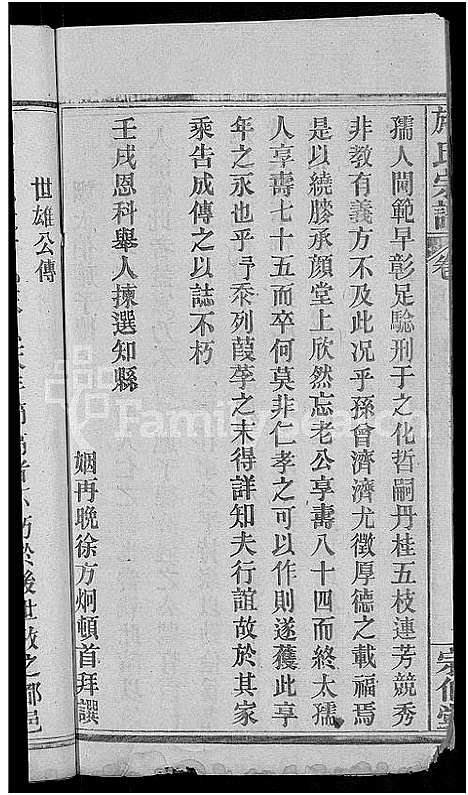 孺人閫範早彰足驗刑于之化哲嗣丹桂五枝連芳競秀
非教有義方不及此况乎孫曾濟濟尤徵厚德之載福焉
是以繞膝承顏堂上欣然忘老公享壽八十四而終太孺
人享壽七十五而卒何莫非仁孝之可以作則遂獲此享
年之永也乎予忝列葭莩之末得詳知夫行誼故於其家
乘告成傳之以誌不朽
壬戌恩科舉人揀選知縣
姻再晚徐方炯頓首拜譔
世雄公傳
於後世敬之鄉邑
氏宗譜
卷
FamilySearch